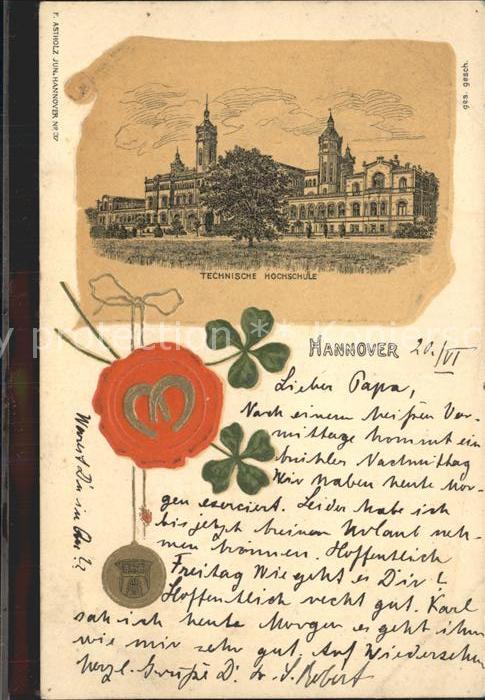 F. ASTHOLZ JUN. HANNOVER. No 37
ges. gesch.
TECHNISCHE HOCHSCHULE
HANNOVER 20./VI
Lieber Papa,
Nach einem heißen Vor-
mittage kommt ein
kühler Nachmittag
Wir haben heute Mor-
gen exerciert. Leider habe ich
bis jetzt keinen Urlaub neh-
men können. Hoffentlich
Freitag Wie geht es Dir?
Hoffentlich recht gut. Karl
sah ich heute Morgen es geht ihm
wie mir sehr gut. Auf Wiedersehn
herzl. Grüße D. Robert
Warest Du in